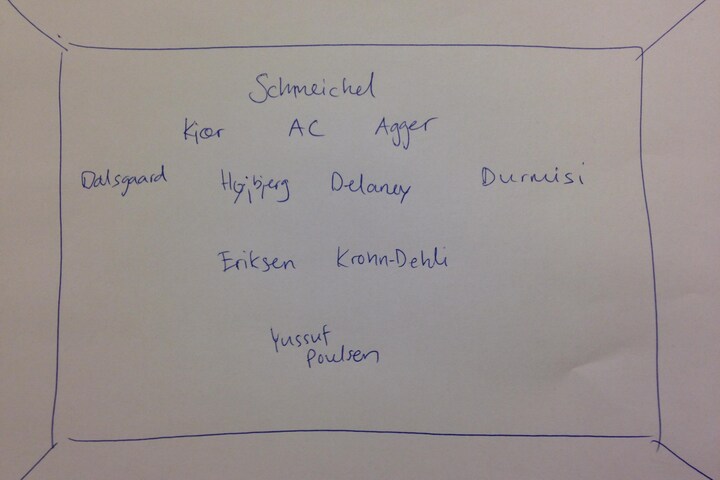 Schmeichel
Kjær AC Agger
Dalsgaard Højbjerg Delaney Durmisi
Eriksen Krohn-Dehli
Yussuf
Poulsen